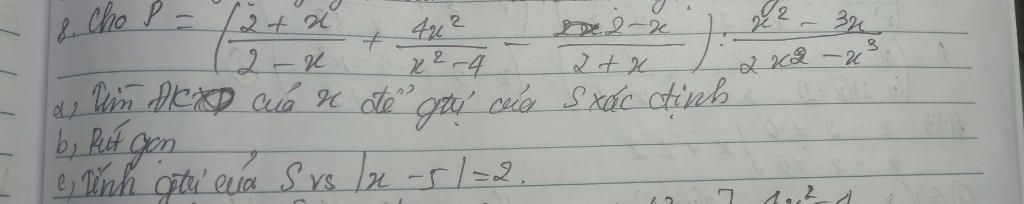 8. Cho P = ( (2 + x)/(2 - x) + 4x²/(x² - 4) - (2 - x)/(2 + x) ) : (x² - 3x)/(2x² - x³)
a, Tìm ĐK của x để gtrị của S xác định
b, Rút gọn
c, Tính gtrị của S vs |x - 5| = 2.